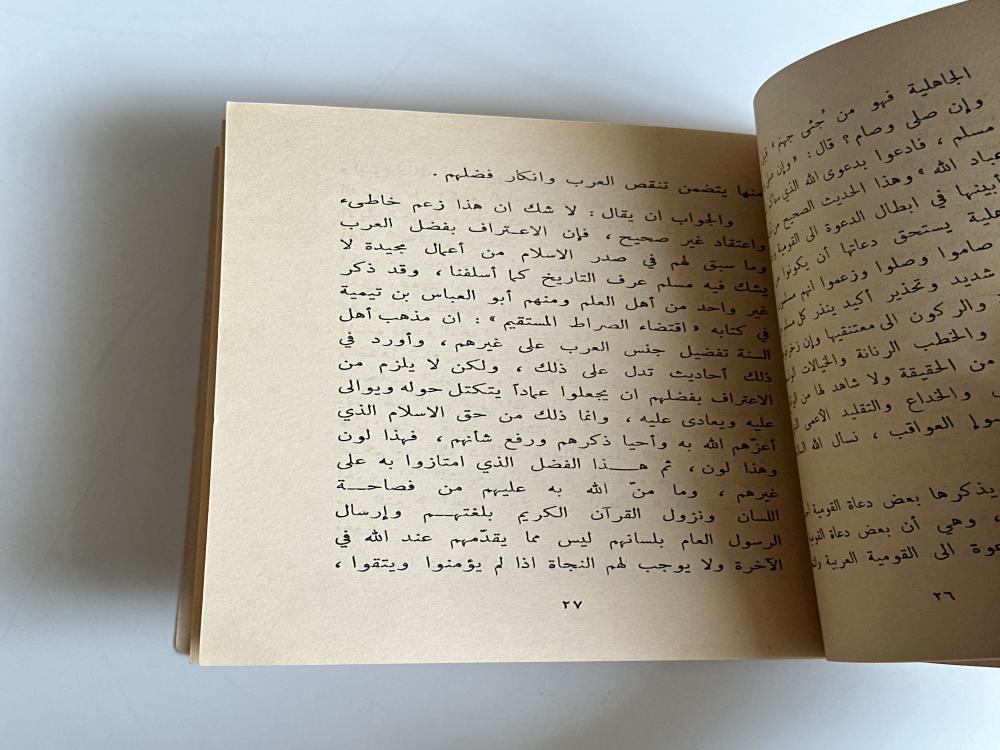 الجاهلية فهو من جُثى جهنم ،
وإن صلى وصام ؟ قال : «وإن
مسلم ، فادعوا بدعوى الله الذي
عباد الله » وهذا الحديث الصحيح من
أبينها في ابطال الدعوة الى القومية
يستحق دعاتها أن يكونوا من
صاموا وصلوا وزعموا انهم
شديد وتحذير أكيد ينذر كل
والركون الى معتنقيها وإن
والخطب الرنانة والخيالات
من الحقيقة ولا شاهد لها من
والخداع والتقليد الأعمى
العواقب ، نسال الله
يذكرها بعض دعاة القومية
، وهي أن بعض دعاة
الى القومية العربية
٢٦
منها يتضمن تنقص العرب وانكار فضلهم .
والجواب ان يقال : لا شك ان هذا زعم خاطىء
واعتقاد غير صحيح ، فإن الاعتراف بفضل العرب
وما سبق لهم في صدر الاسلام من أعمال مجيدة لا
يشك فيه مسلم عرف التاريخ كما أسلفنا ، وقد ذكر
غير واحد من أهل العلم ومنهم أبو العباس بن تيمية
في كتابه «اقتضاء الصراط المستقيم» : ان مذهب أهل
السنة تفضيل جنس العرب على غيرهم ، وأورد في
ذلك أحاديث تدل على ذلك ، ولكن لا يلزم من
الاعتراف بفضلهم ان يجعلوا عماداً يتكتل حوله ويوالى
عليه ويعادى عليه ، وانما ذلك من حق الاسلام الذي
أعزّهم الله به وأحيا ذكرهم ورفع شأنهم ، فهذا لون
وهذا لون ، ثم هـــذا الفضل الذي امتازوا به على
غيرهم ، وما منّ الله به عليهم من فصاحـــة
اللسان ونزول القرآن الكريم بلغتهـــم وإرسال
الرسول العام بلسانهم ليس مما يقدّمهم عند الله في
الآخرة ولا يوجب لهم النجاة اذا لم يؤمنوا ويتقوا ،
٢٧